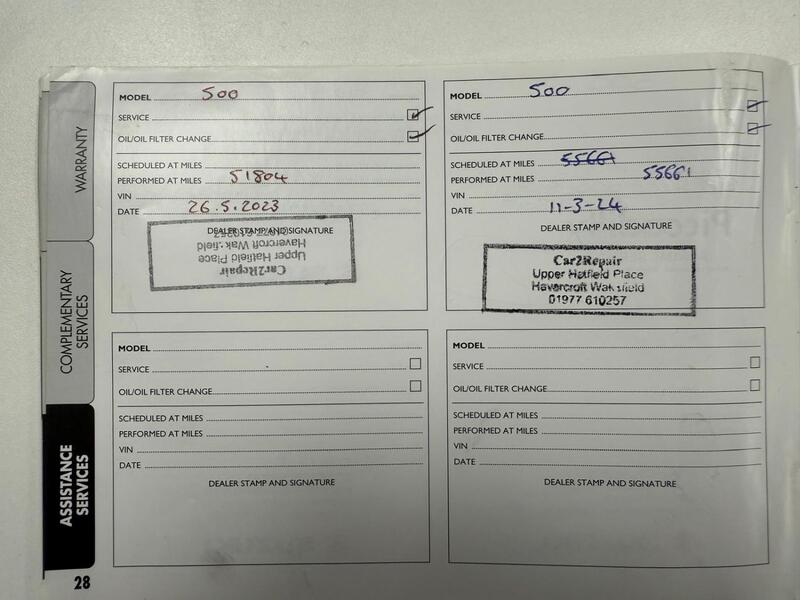 WARRANTY
COMPLEMENTARY
SERVICES
ASSISTANCE
SERVICES
28
MODEL 500
SERVICE
OIL/OIL FILTER CHANGE
SCHEDULED AT MILES
PERFORMED AT MILES 51804
VIN
DATE 26.5.2023
DEALER STAMP AND SIGNATURE
Car2Repair
Upper Hatfield Place
Havercroft Wak field
MODEL 500
SERVICE
OIL/OIL FILTER CHANGE
SCHEDULED AT MILES 55661
PERFORMED AT MILES 55661
VIN
DATE 11-3-24
DEALER STAMP AND SIGNATURE
Car2Repair
Upper Hatfield Place
Havercroft Wakefield
01977 610257
MODEL
SERVICE
OIL/OIL FILTER CHANGE
SCHEDULED AT MILES
PERFORMED AT MILES
VIN
DATE
DEALER STAMP AND SIGNATURE
MODEL
SERVICE
OIL/OIL FILTER CHANGE
SCHEDULED AT MILES
PERFORMED AT MILES
VIN
DATE
DEALER STAMP AND SIGNATURE